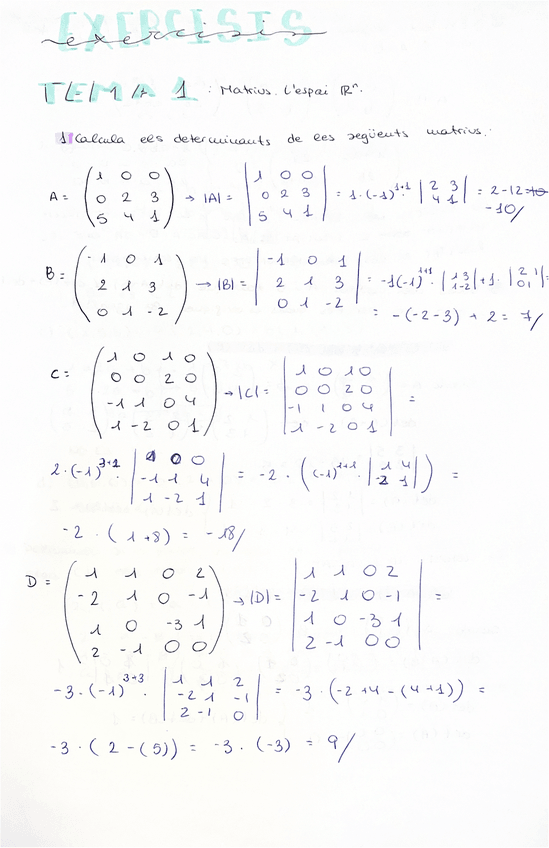 EXERCISIS
exercisis
TEMA 1 : Matrius. L'espai ℝⁿ.
1 Calcula els determinants de les següents matrius:
A = (1 0 0; 0 2 3; 5 4 1) → |A| = |1 0 0; 0 2 3; 5 4 1| = 1·(-1)^(1+1) · |2 3; 4 1| = 2-12 =
-10/
B = (-1 0 1; 2 1 3; 0 1 -2) → |B| = |-1 0 1; 2 1 3; 0 1 -2| = -1(-1)^(1+1) · |1 3; 1 -2| + 1 · |2 1; 0 1| =
= -(-2-3) + 2 = 7/
C = (1 0 1 0; 0 0 2 0; -1 1 0 4; 1 -2 0 1) → |C| = |1 0 1 0; 0 0 2 0; -1 1 0 4; 1 -2 0 1| =
2·(-1)^(3+2) · |1 0 0; -1 1 4; 1 -2 1| = -2 · ((-1)^(1+1) · |1 4; -2 1|) =
-2 · (1+8) = -18/
D = (1 1 0 2; -2 1 0 -1; 1 0 -3 1; 2 -1 0 0) → |D| = |1 1 0 2; -2 1 0 -1; 1 0 -3 1; 2 -1 0 0| =
-3·(-1)^(3+3) · |1 1 2; -2 1 -1; 2 -1 0| = -3·(-2+4-(4+1)) =
-3·(2-(5)) = -3·(-3) = 9/